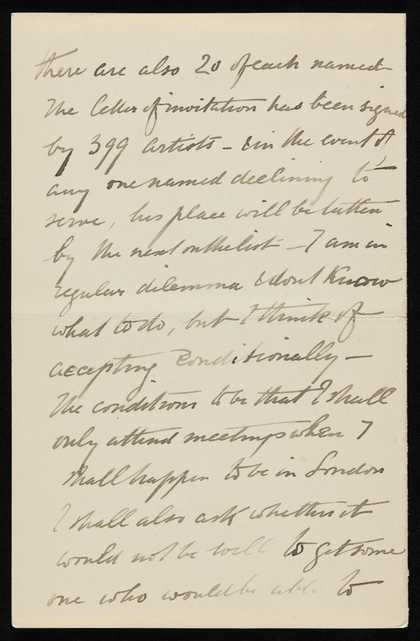 there are also 20 of each named
The letter of invitation has been signed
by 399 artists – & in the event of
any one named declining to
serve, his place will be taken
by the next on the list – I am in
regular dilemma & dont know
what to do, but I think of
accepting conditionally –
The conditions to be that I shall
only attend meetings when I
shall happen to be in London
I shall also ask whether it
would not be well to get some
one who would be able to